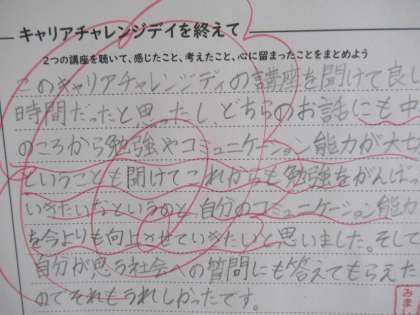 キャリアチャレンジデイを終えて
2つの講座を聴いて、感じたこと、考えたこと、心に留まったことをまとめよう
このキャリアチャレンジディの講座を聞けて良い
時間だったと思ったし どちらのお話にも中
のころから勉強やコミュニケーション能力が大切
ということも聞けてこれからも勉強をがんばっ
いきたいなというのと、自分のコミュニケーション能力
を今よりも向上させていきたいと思いました。そして
自分が思う社会への質問にも答えてもらえた
のでそれもうれしかったです。